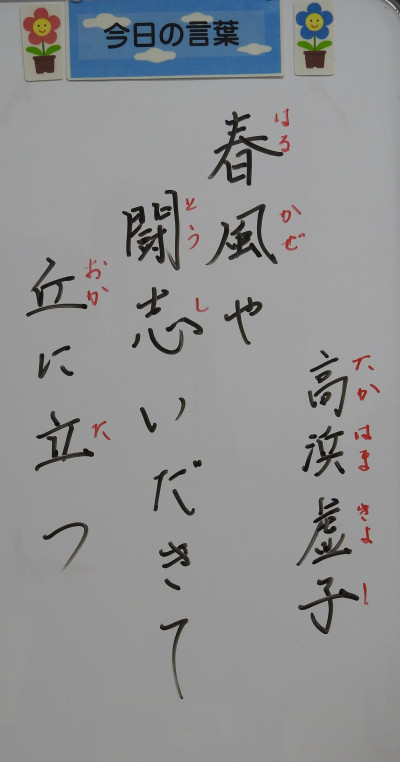 今日の言葉
高浜虚子
たかはまきよし
春風や
はるかぜ
闘志いだきて
とうし
丘に立つ
おかた